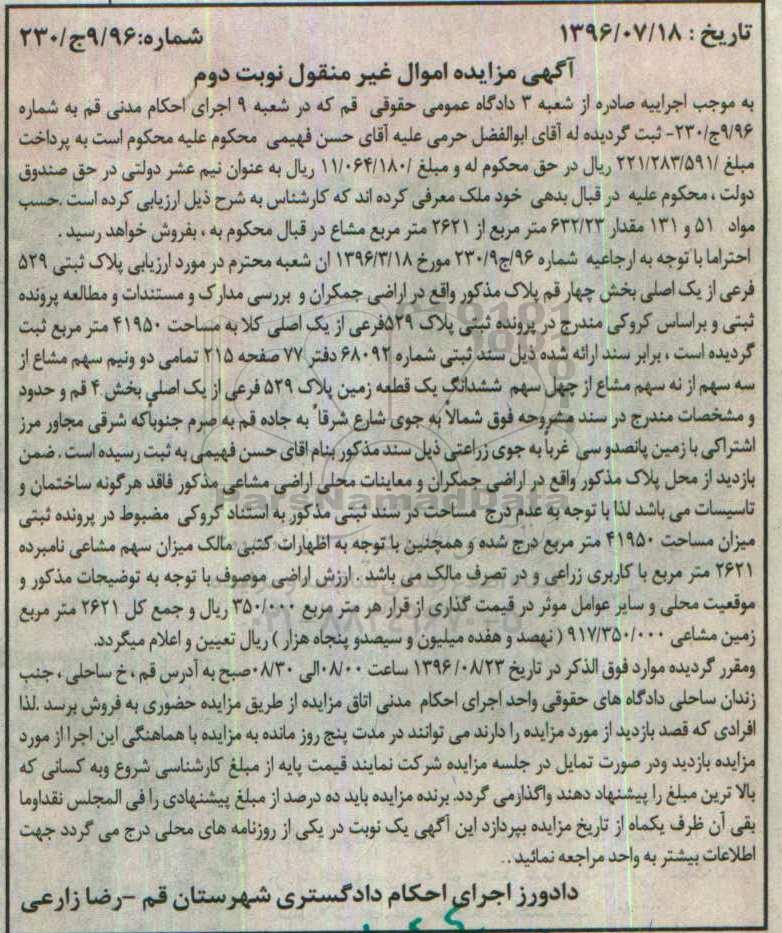 تاریخ : ۱۳۹۶/۰۷/۱۸
شماره:۹/۹۶ج/۲۳۰
آگهی مزایده اموال غیر منقول نوبت دوم
به موجب اجراییه صادره از شعبه ۳ دادگاه عمومی حقوقی قم که در شعبه ۹ اجرای احکام مدنی قم به شماره
۹/۹۶ج/۲۳۰- ثبت گردیده له آقای ابوالفضل حرمی علیه آقای حسن فهیمی محکوم علیه محکوم است به پرداخت
مبلغ /۲۲۱/۲۸۳/۵۹۱ ریال در حق محکوم له و مبلغ /۱۱/۰۶۴/۱۸۰ ریال به عنوان نیم عشر دولتی در حق صندوق
دولت ، محکوم علیه در قبال بدهی خود ملک معرفی کرده اند که کارشناس به شرح ذیل ارزیابی کرده است .حسب
مواد ۵۱ و ۱۳۱ مقدار ۶۳۲/۲۳ متر مربع از ۲۶۲۱ متر مربع مشاع در قبال محکوم به ، بفروش خواهد رسید .
احتراما با توجه به ارجاعیه شماره ۹۶/ج۲۳۰/۹ مورخ ۱۳۹۶/۳/۱۸ ان شعبه محترم در مورد ارزیابی پلاک ثبتی ۵۲۹
فرعی از یک اصلی بخش چهار قم پلاک مذکور واقع در اراضی جمکران و بررسی مدارک و مستندات و مطالعه پرونده
ثبتی و براساس کروکی مندرج در پرونده ثبتی پلاک ۵۲۹فرعی از یک اصلی کلا به مساحت ۴۱۹۵۰ متر مربع ثبت
گردیده است ، برابر سند ارائه شده ذیل سند ثبتی شماره ۶۸۰۹۲ دفتر ۷۷ صفحه ۲۱۵ تمامی دو ونیم سهم مشاع از
سه سهم از نه سهم مشاع از چهل سهم ششدانگ یک قطعه زمین پلاک ۵۲۹ فرعی از یک اصلی بخش ۴ قم و حدود
و مشخصات مندرج در سند مشروحه فوق شمالاً به جوی شارع شرقاً به جاده قم به صرم جنوباًکه شرقی مجاور مرز
اشتراکی با زمین پانصدو سی غرباً به جوی زراعتی ذیل سند مذکور بنام اقای حسن فهیمی به ثبت رسیده است . ضمن
بازدید از محل پلاک مذکور واقع در اراضی جمکران و معاینات محلی اراضی مشاعی مذکور فاقد هرگونه ساختمان و
تاسیسات می باشد لذا با توجه به عدم درج مساحت در سند ثبتی مذکور به استناد کروکی مضبوط در پرونده ثبتی
میزان مساحت ۴۱۹۵۰ متر مربع درج شده و همچنین با توجه به اظهارات کتبی مالک میزان سهم مشاعی نامبرده
۲۶۲۱ متر مربع با کاربری زراعی و در تصرف مالک می باشد . ارزش اراضی موصوف با توجه به توضیحات مذکور و
موقعیت محلی و سایر عوامل موثر در قیمت گذاری از قرار هر متر مربع ۳۵۰/۰۰۰ ریال و جمع کل ۲۶۲۱ متر مربع
زمین مشاعی ۹۱۷/۳۵۰/۰۰۰ ( نهصد و هفده میلیون و سیصدو پنجاه هزار ) ریال تعیین و اعلام میگردد.
ومقرر گردیده موارد فوق الذکر در تاریخ ۱۳۹۶/۰۸/۲۳ ساعت ۰۸/۰۰الی ۰۸/۳۰صبح به آدرس قم ، خ ساحلی ، جنب
زندان ساحلی دادگاه های حقوقی واحد اجرای احکام مدنی اتاق مزایده از طریق مزایده حضوری به فروش برسد .لذا
افرادی که قصد بازدید از مورد مزایده را دارند می توانند در مدت پنج روز مانده به مزایده با هماهنگی این اجرا از مورد
مزایده بازدید ودر صورت تمایل در جلسه مزایده شرکت نمایند قیمت پایه از مبلغ کارشناسی شروع وبه کسانی که
بالا ترین مبلغ را پیشنهاد دهند واگذارمی گردد. برنده مزایده باید ده درصد از مبلغ پیشنهادی را فی المجلس نقداوما
بقی آن ظرف یکماه از تاریخ مزایده بپردازد این آگهی یک نوبت در یکی از روزنامه های محلی درج می گردد جهت
اطلاعات بیشتر به واحد مراجعه نمائید ..
دادورز اجرای احکام دادگستری شهرستان قم -رضا زارعی
ParsNamadData